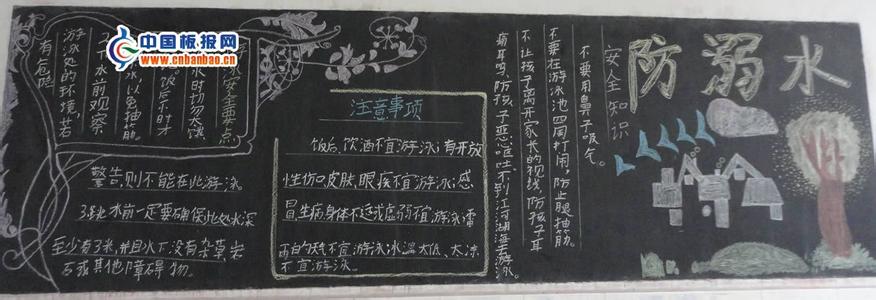 防溺水
安全知识
不要用鼻子吸气。
不要在游泳池四周打闹,防止腿抽筋。
不让孩子离开家长的视线,防孩子耳
痛耳鸣,防孩子恶心呕吐不到江河湖海去游泳。
注意事项
饭后、饮酒不宜游泳;有开放
性伤口皮肤、眼疾不宜游泳;感
冒、生病、身体不适或虚弱不宜游泳;雷
雨的天气不宜游泳;水温太低、太凉
不宜游泳。
泳安全要点
水时切勿太饿
饭后不时才
水以免抽筋。
2.下水前观察
游泳处的环境,若
有危险
警告,则不能在此游泳。
3.跳水前一定要确保此处水深
至少有3米,并且水下没有杂草、岩
石或其他障碍物。
中国板报网
www.cnbanbao.cn